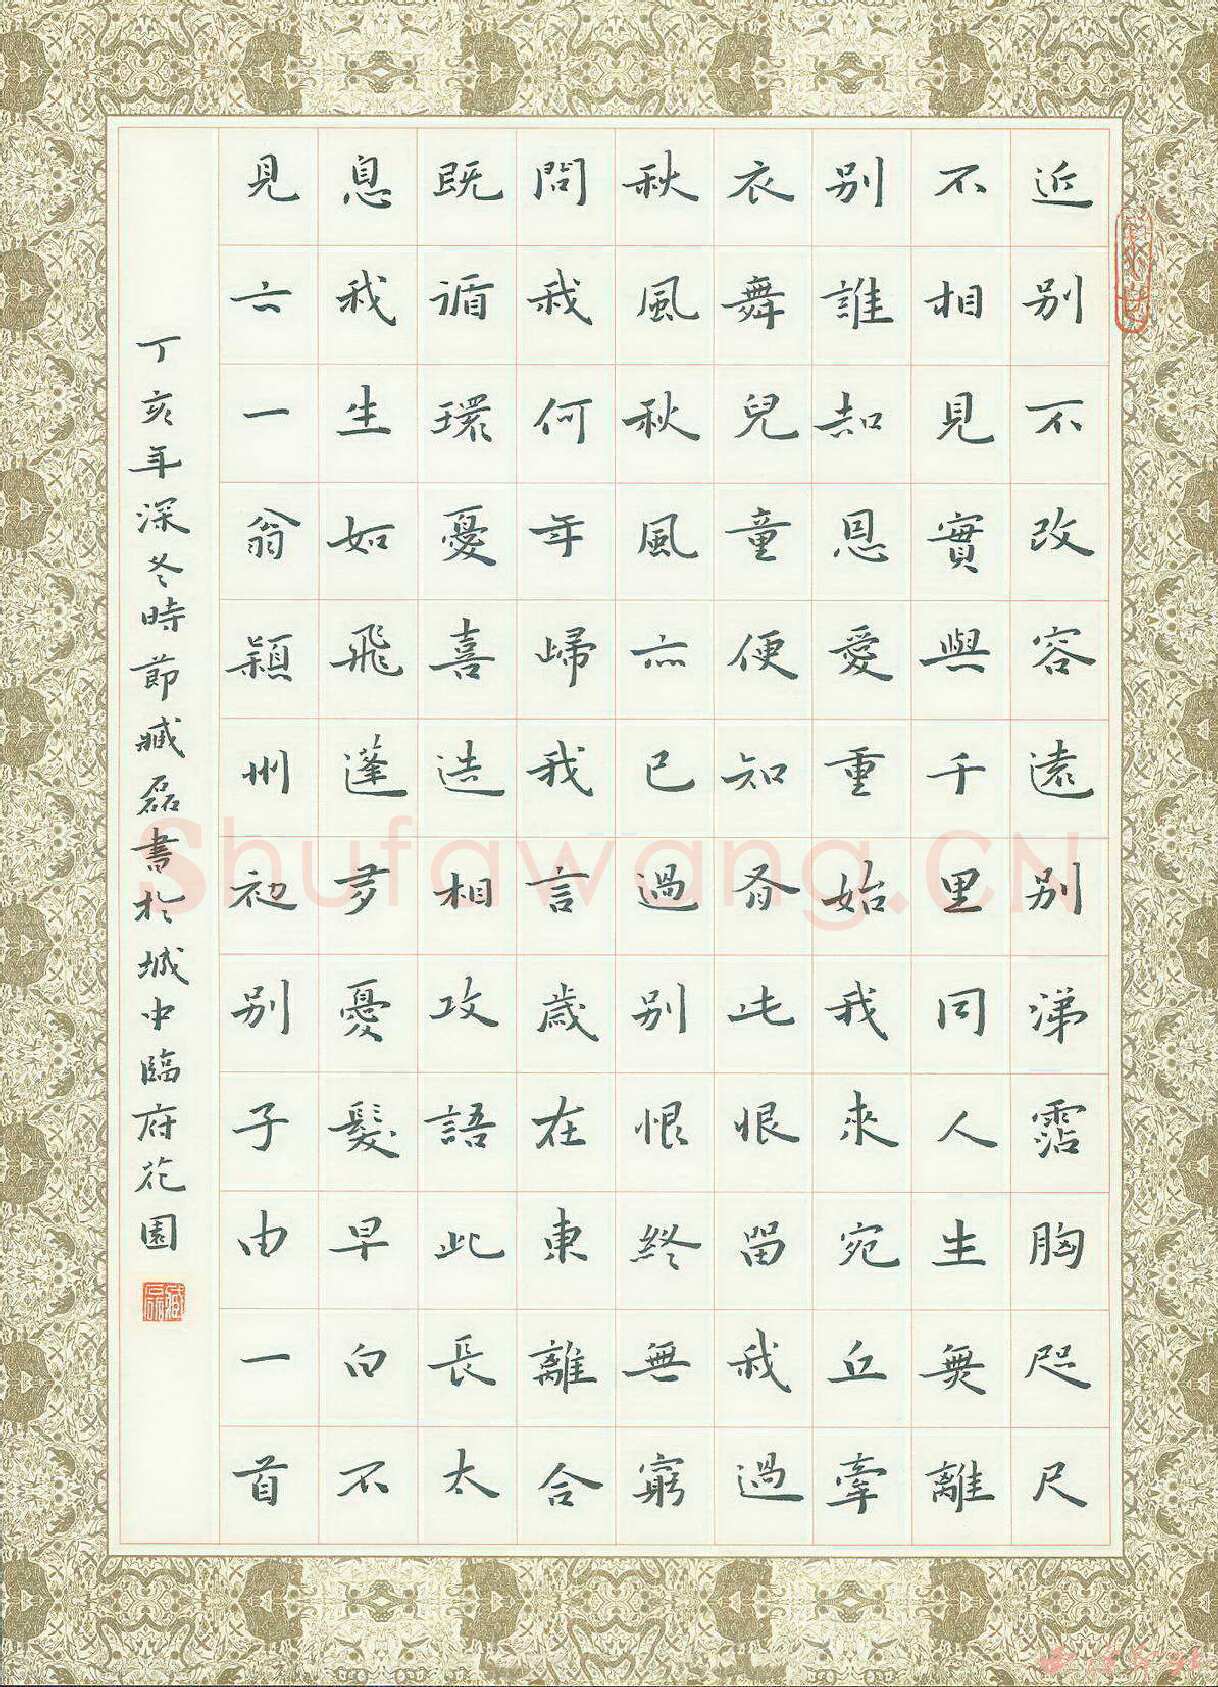 近别不改容遠别涕霑胸咫尺
不相見實與千里同人生無離
别誰知恩愛重始我來宛丘牽
衣舞兒童便知有此恨留我過
秋風秋風亦已過别恨終無窮
問我何年歸我言歲在東離合
既循環憂喜迭相攻語此長太
息我生如飛蓬多憂髮早白不
見六一翁潁州初别子由一首
丁亥年深冬時節臧磊書於城中臨府花園
臧磊
Shufawang.CN